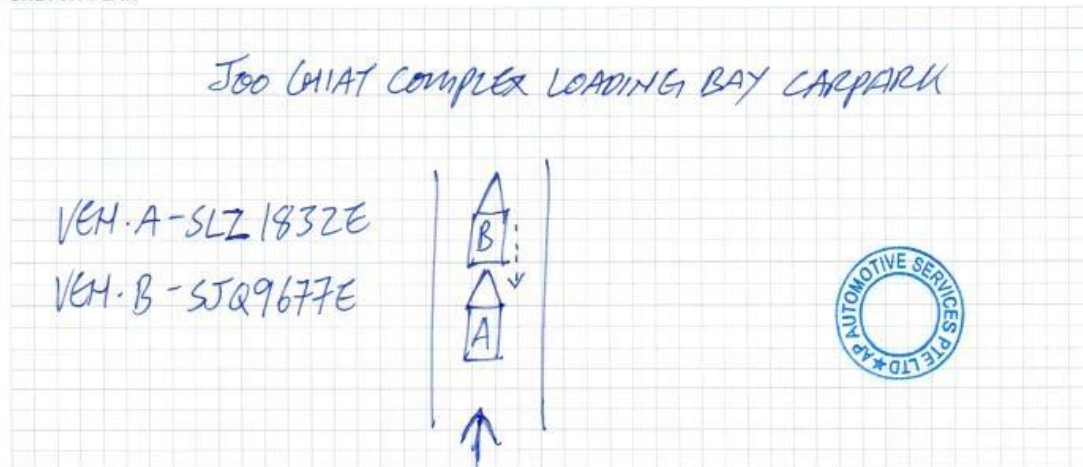 JOO CHIAT COMPLEX LOADING BAY CARPARK
VEH. A - SLZ 1832E
VEH. B - SJQ9677E
B
A
AP AUTOMOTIVE SERVICES PTE LTD ★